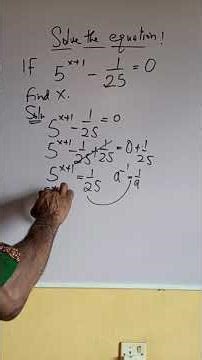 Solve the equation!
If 5^{x+1} - 1/25 = 0
find x.
Soln
5^{x+1} - 1/25 = 0
5^{x+1} - 1/25 + 1/25 = 0 + 1/25
5^{x+1} = 1/25 a^{-1} = 1/a